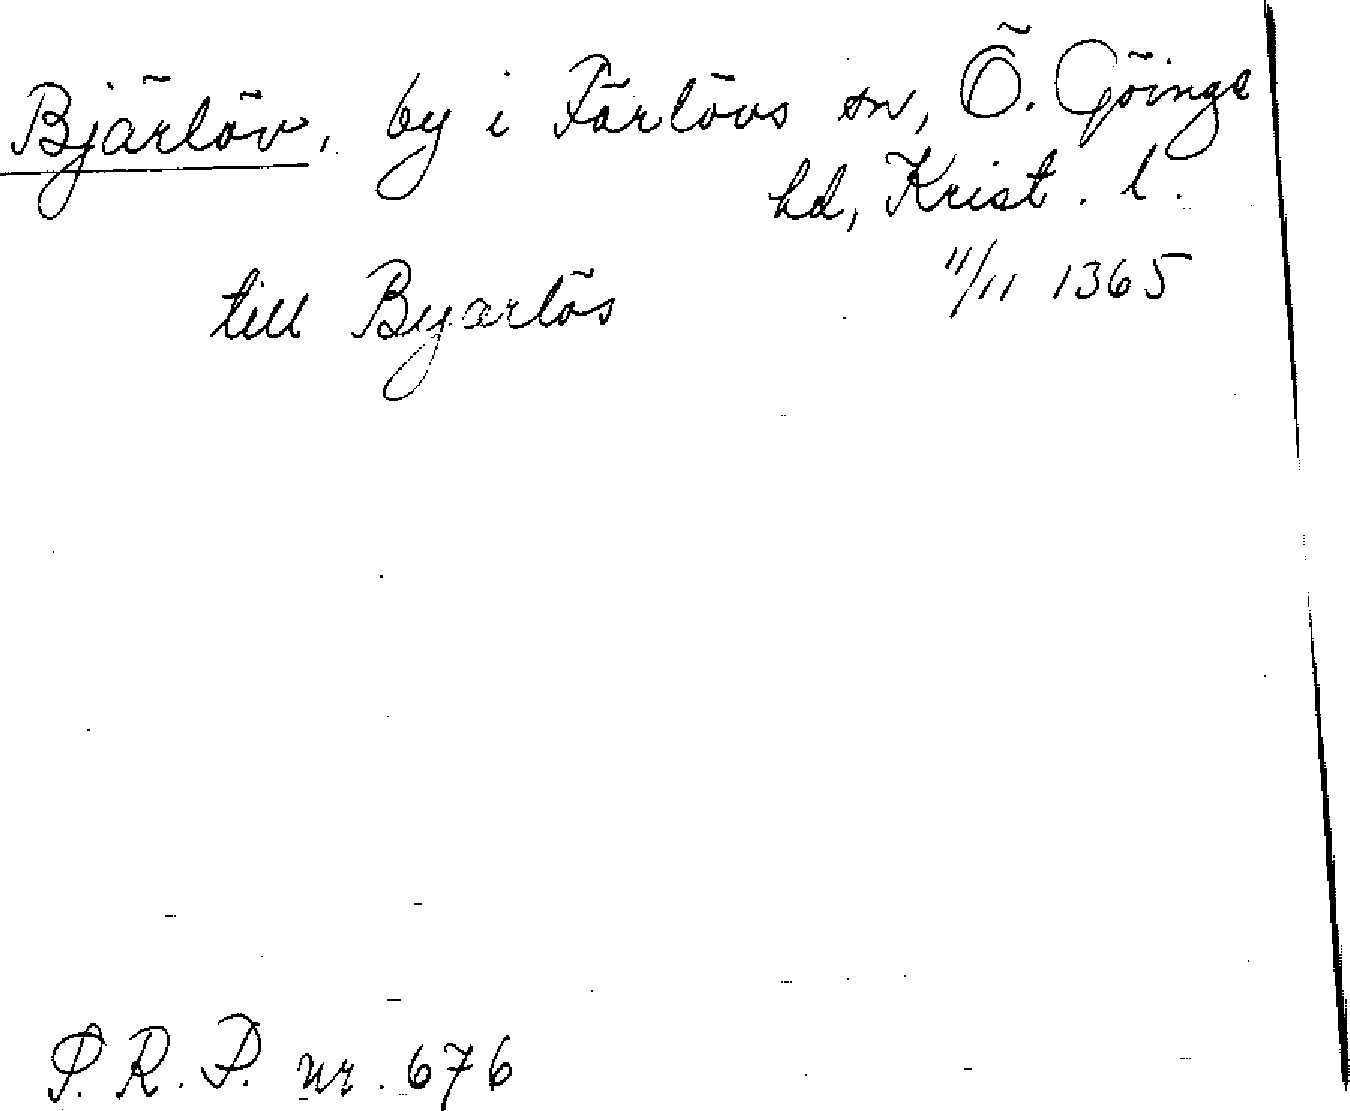 Bjärlöv, by i Färlövs sn, Ö. Göinge
hd, Krist. l.
till Byarlös 11/11 1365
S.R.P. nr. 676